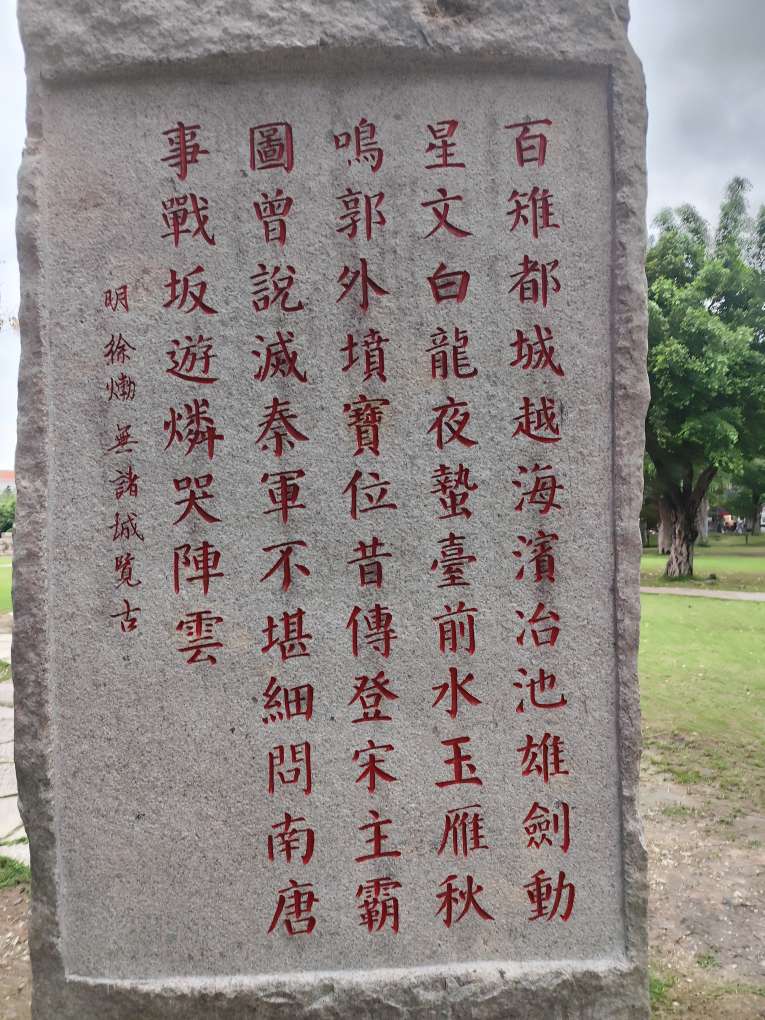 百雉都城越海濱冶池雄劍動
星文白龍夜蟄臺前水玉雁秋
鳴郭外墳寶位昔傳登宋主霸
圖曾說滅秦軍不堪細問南唐
事戰坂遊燐哭陣雲
明徐𤊹無諸城覽古